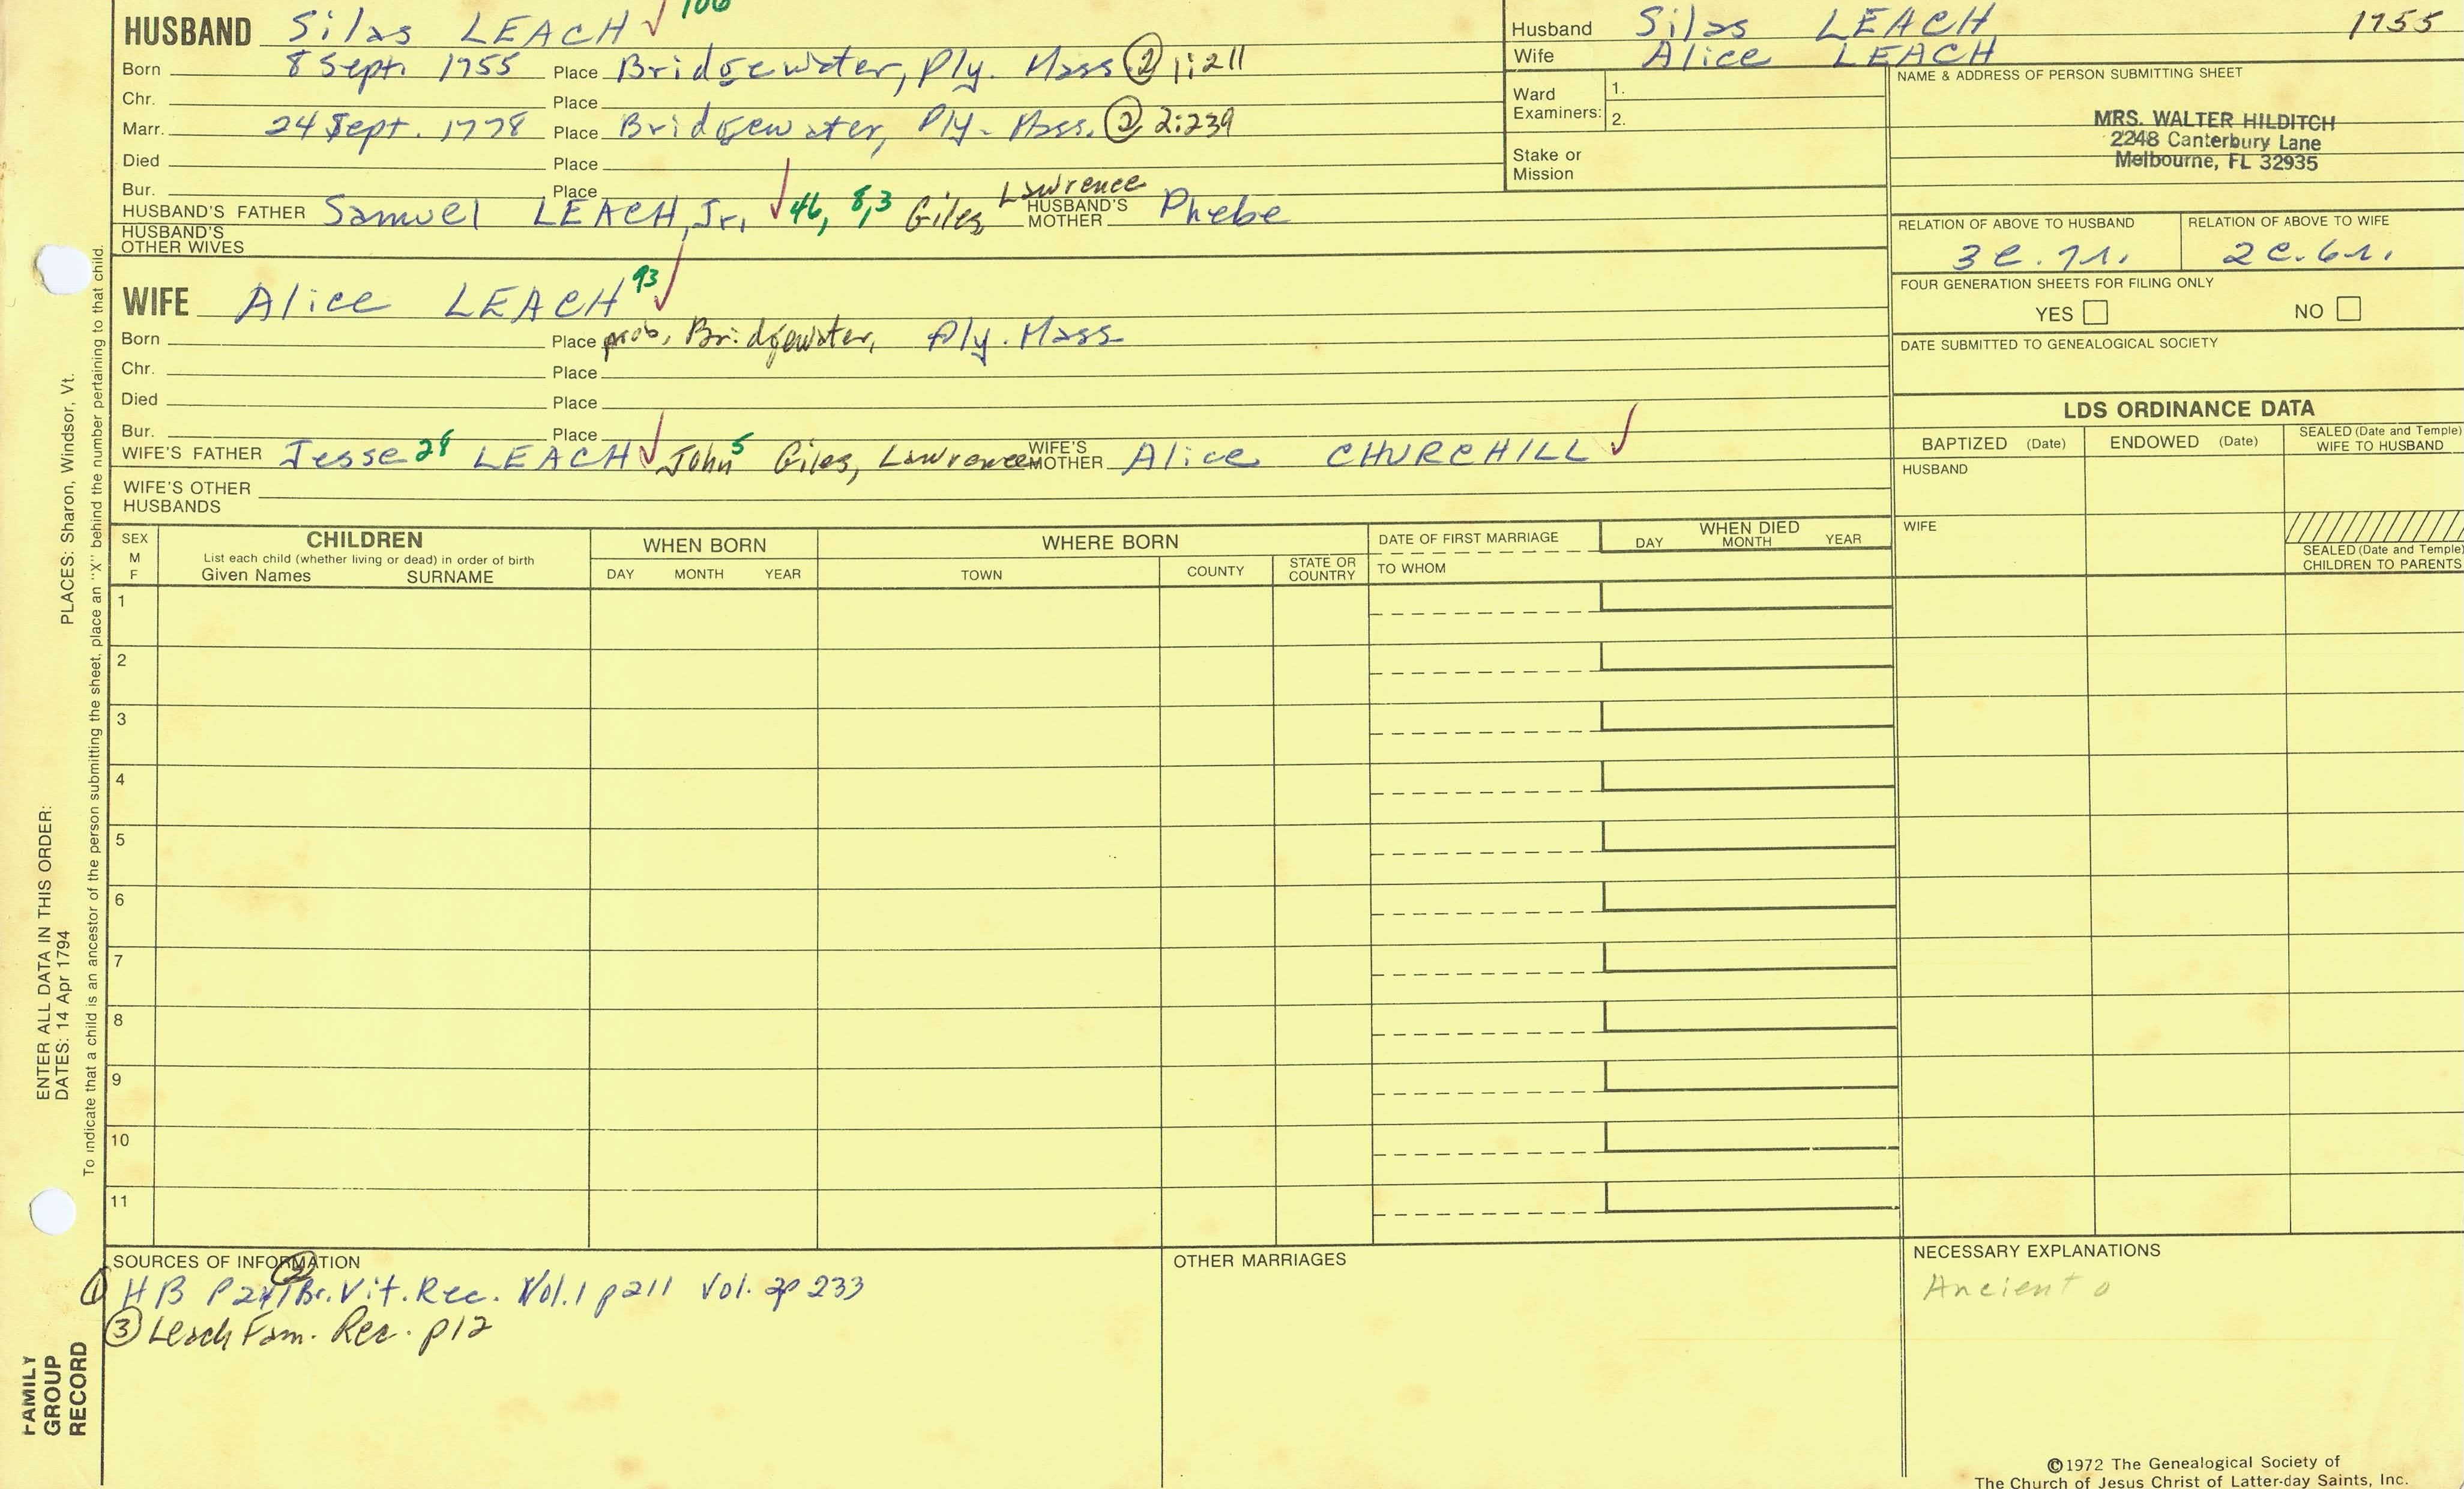 HUSBAND Silas LEACH ✓ 106
Born 8 Sept. 1755 Place Bridgewater, Ply. Mass ② 1:211
Chr. Place
Marr. 24 Sept. 1778 Place Bridgewater, Ply. Mass. ② 2:239
Died Place
Bur. Place
HUSBAND'S FATHER Samuel LEACH, Jr. ✓ 46, 8,3 Giles Lawrence HUSBAND'S MOTHER Phebe
HUSBAND'S OTHER WIVES
Husband Silas LEACH 1755
Wife Alice LEACH
Ward Examiners: 1.
2.
Stake or Mission
NAME & ADDRESS OF PERSON SUBMITTING SHEET
MRS. WALTER HILDITCH
2248 Canterbury Lane
Melbourne, FL 32935
RELATION OF ABOVE TO HUSBAND RELATION OF ABOVE TO WIFE
3c.7r. 2c.6r.
FOUR GENERATION SHEETS FOR FILING ONLY
YES NO
DATE SUBMITTED TO GENEALOGICAL SOCIETY
WIFE Alice LEACH 93 ✓
Born Place prob. Bridgewater, Ply. Mass
Chr. Place
Died Place
Bur. Place
WIFE'S FATHER Jesse 28 LEACH ✓ John 5 Giles, Lawrence WIFE'S MOTHER Alice CHURCHILL ✓
WIFE'S OTHER HUSBANDS
LDS ORDINANCE DATA
BAPTIZED (Date) ENDOWED (Date) SEALED (Date and Temple) WIFE TO HUSBAND
HUSBAND
WIFE
SEALED (Date and Temple) CHILDREN TO PARENTS
SEX M F
CHILDREN
List each child (whether living or dead) in order of birth
Given Names SURNAME
WHEN BORN
DAY MONTH YEAR
WHERE BORN
TOWN COUNTY STATE OR COUNTRY
DATE OF FIRST MARRIAGE
TO WHOM
WHEN DIED
DAY MONTH YEAR
1
2
3
4
5
6
7
8
9
10
11
SOURCES OF INFORMATION
① HB P241 ② Br. Vit. Rec. Vol. 1 p211 Vol. 2p 233
③ Leach Fam. Rec. p12
OTHER MARRIAGES
NECESSARY EXPLANATIONS
Ancient o
©1972 The Genealogical Society of
The Church of Jesus Christ of Latter-day Saints, Inc.
ENTER ALL DATA IN THIS ORDER:
DATES: 14 Apr 1794 PLACES: Sharon, Windsor, Vt.
To indicate that a child is an ancestor of the person submitting the sheet, place an "X" behind the number pertaining to that child.
FAMILY
GROUP
RECORD